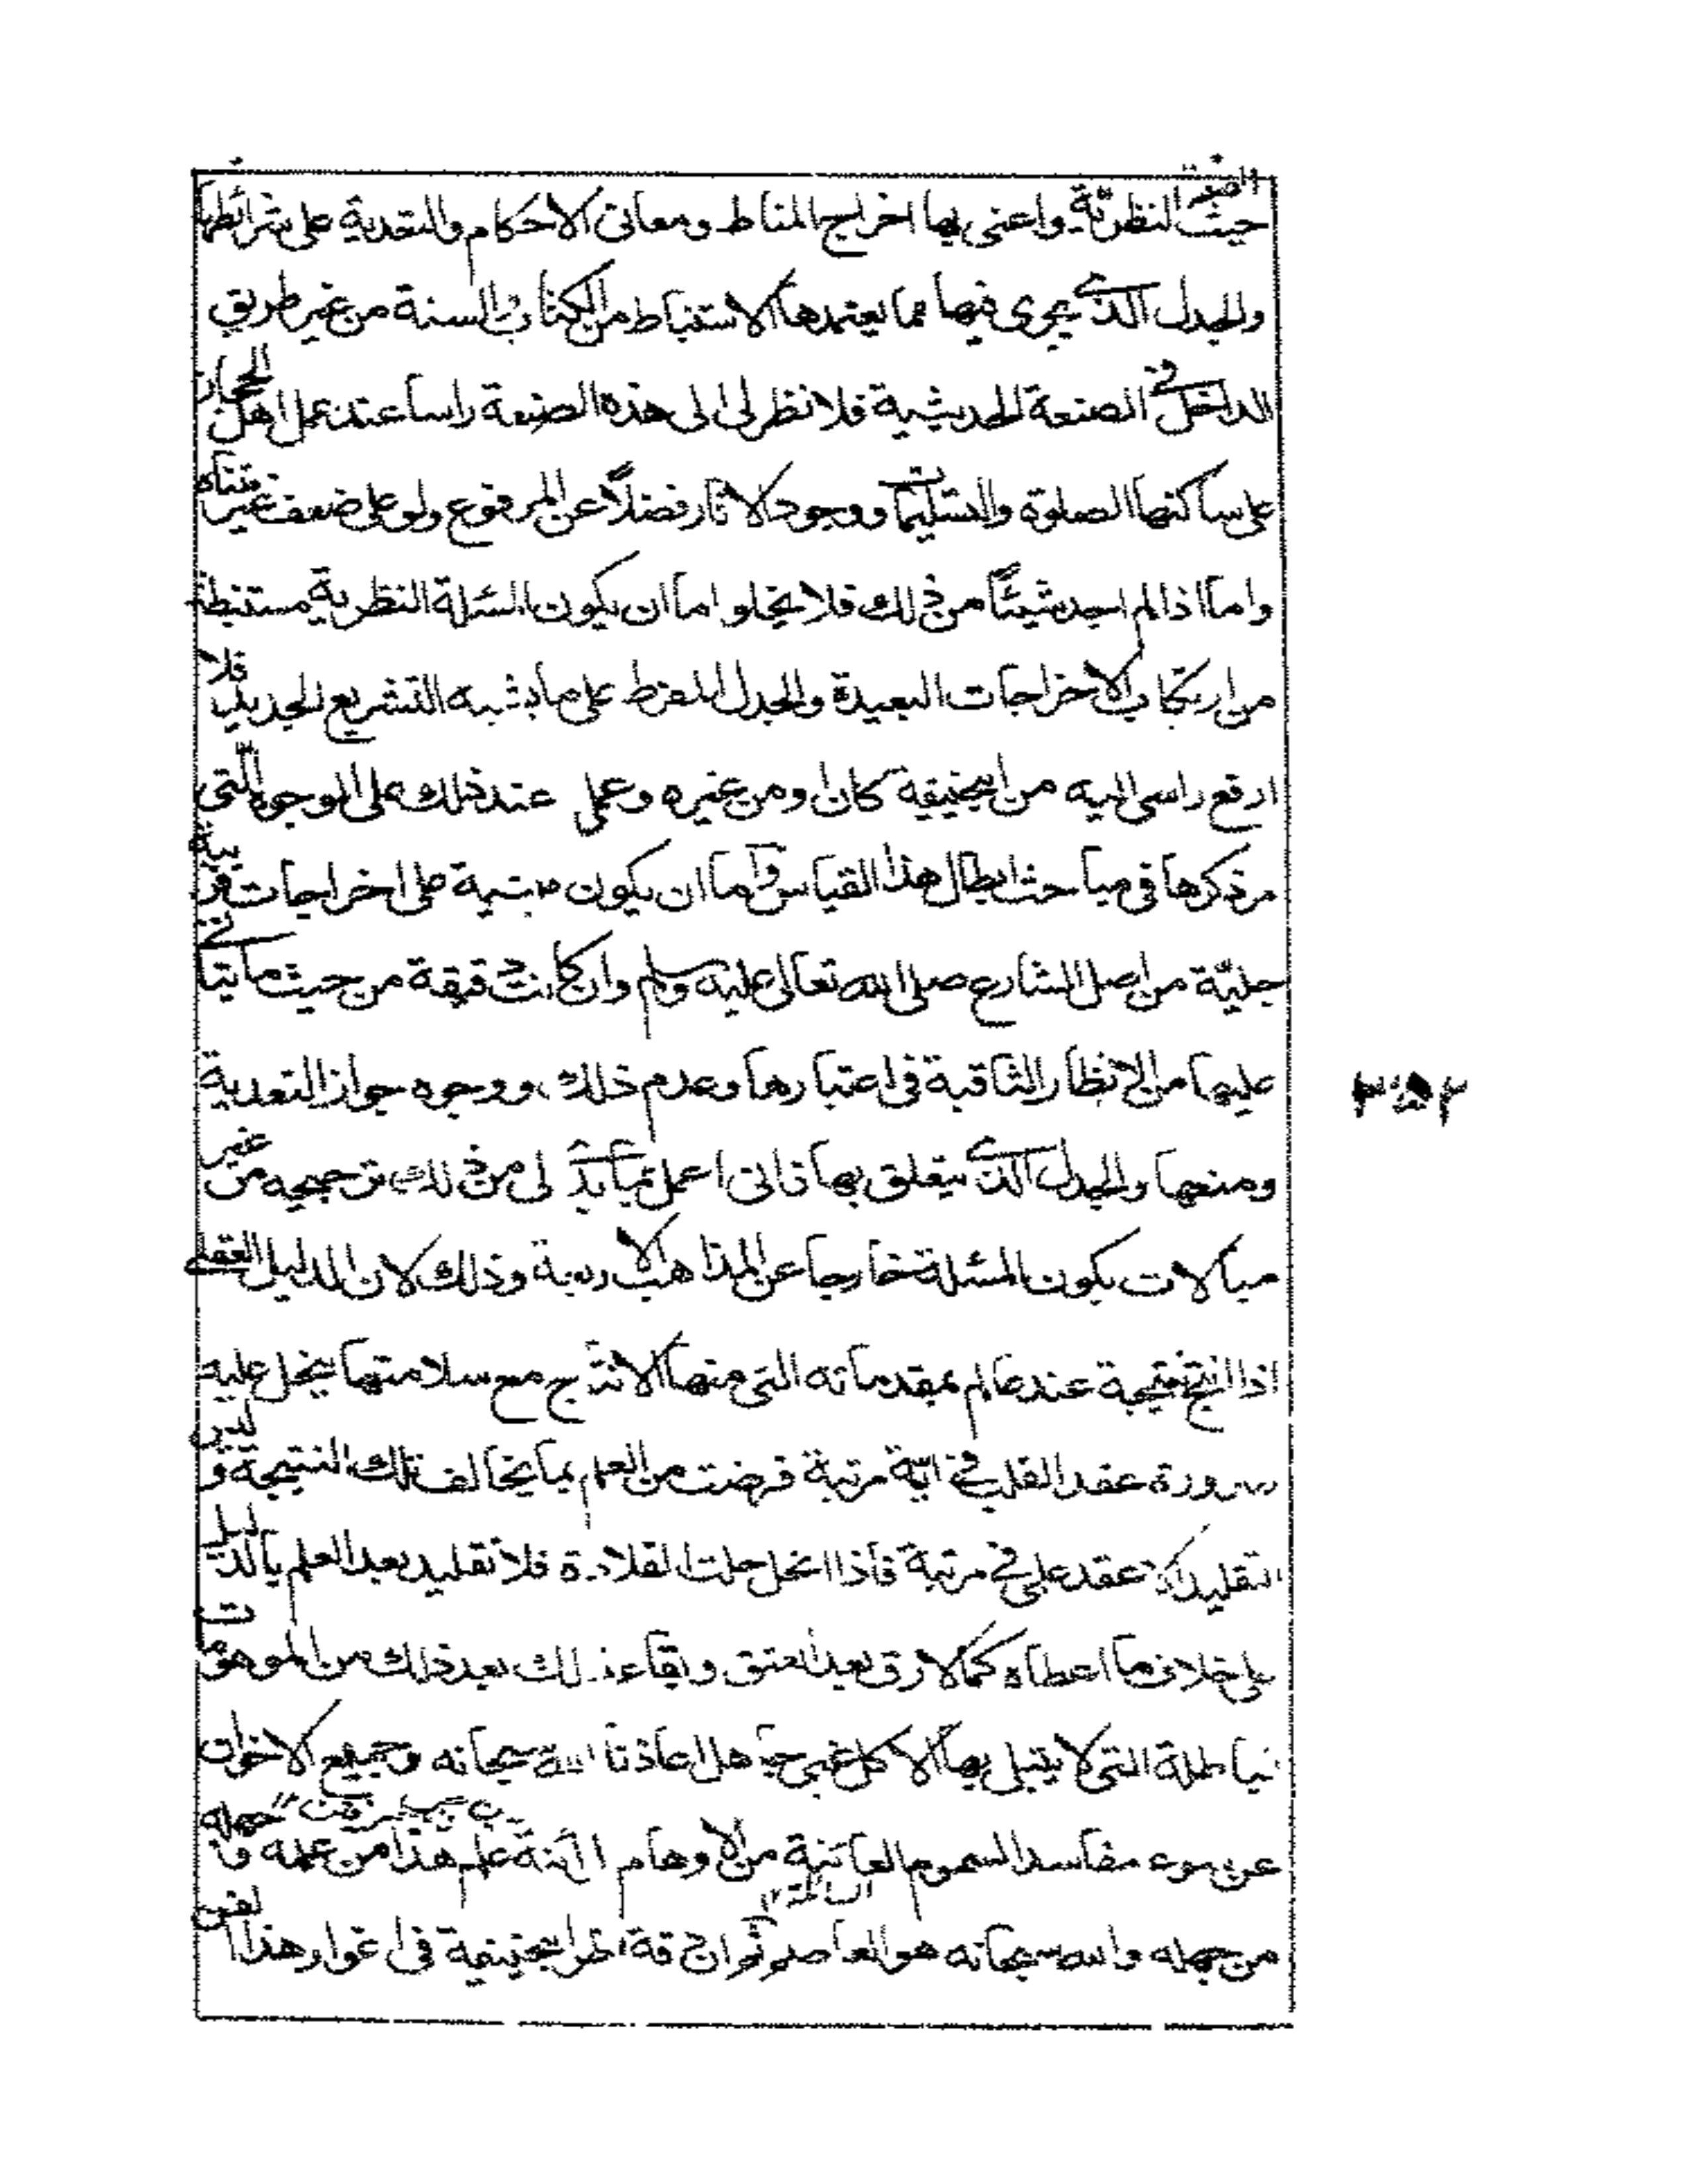 حيث الصنعة النظريّة واعنى بها اخراج المناط ومعانى الاحكام والتعدية على شرائطها
والجدل الذى يجرى فيها مما يعتمدها الاستنباط من الكتاب والسنة من غير طريق
الداخل فى الصنعة الحديثية فلا نظر لى الى هذه الصنعة راسا عند عمل اهل الحجاز
على ساكنها الصلوة والتسليمات ووجود الاثار فضلاً عن المرفوع ولو على ضعف غير متناه
واما اذا لم اجد شيئاً من ذلك فلا يخلوا اما ان يكون المسئلة النظرية مستنبطة
من ارتكاب الاخراجات البعيدة والجدل المفرط على ما يشبه التشريع الجديد فلا
ارفع راسى اليه من ابيحنيفة كان او من غيره وعملى عند ذلك على الوجوه التى
مر ذكرها فى مباحث ابطال هذا القياس واما ان يكون مبتنية على اخراجات قريبة
جليّة من اصل الشارع صلى الله تعالى عليه وسلم وان كانت دقيقة من حيث ما يتاتى
عليها من الانظار الثاقبة فى اعتبارها وعدم ذلك ووجوه جواز التعدية
ومنعها والجدل الذى يتعلق بها فانى اعمل بما بدا لى من ذلك ترجيحه من غير
مبالات بكون المسئلة خارجا عن المذاهب الاربعة وذلك لان الدليل العقلى
اذا انتج نتيجة عند عالم بمقدماته التى منها الانتاج مع سلامتها ينحل عليه
ضرورة عقد القلب فى ايّة مرتبة فرضت من العلم بما يخالف تلك النتيجة وليس
التقليد الا عقد على فى مرتبة فاذا انحل حلت القلادة فلا تقليد بعد العلم بالدليل
على خلاف ما اعطاه كما لا رق بعد العتق وبقاء ذلك بعد ذلك من الموهومات
الباطلة التى لا يبتلى بها الا كل غبى جاهل اعاذنا الله سبحانه وجميع الاخوان
عن سوء مفاسد السموم العاتية من الاوهام علم هذا من علمه وجهله
من جهله والله سبحانه هو العاصم ثم ان دقة نظر ابيحنيفة فى اغوار هذا الفن
٣٥٢